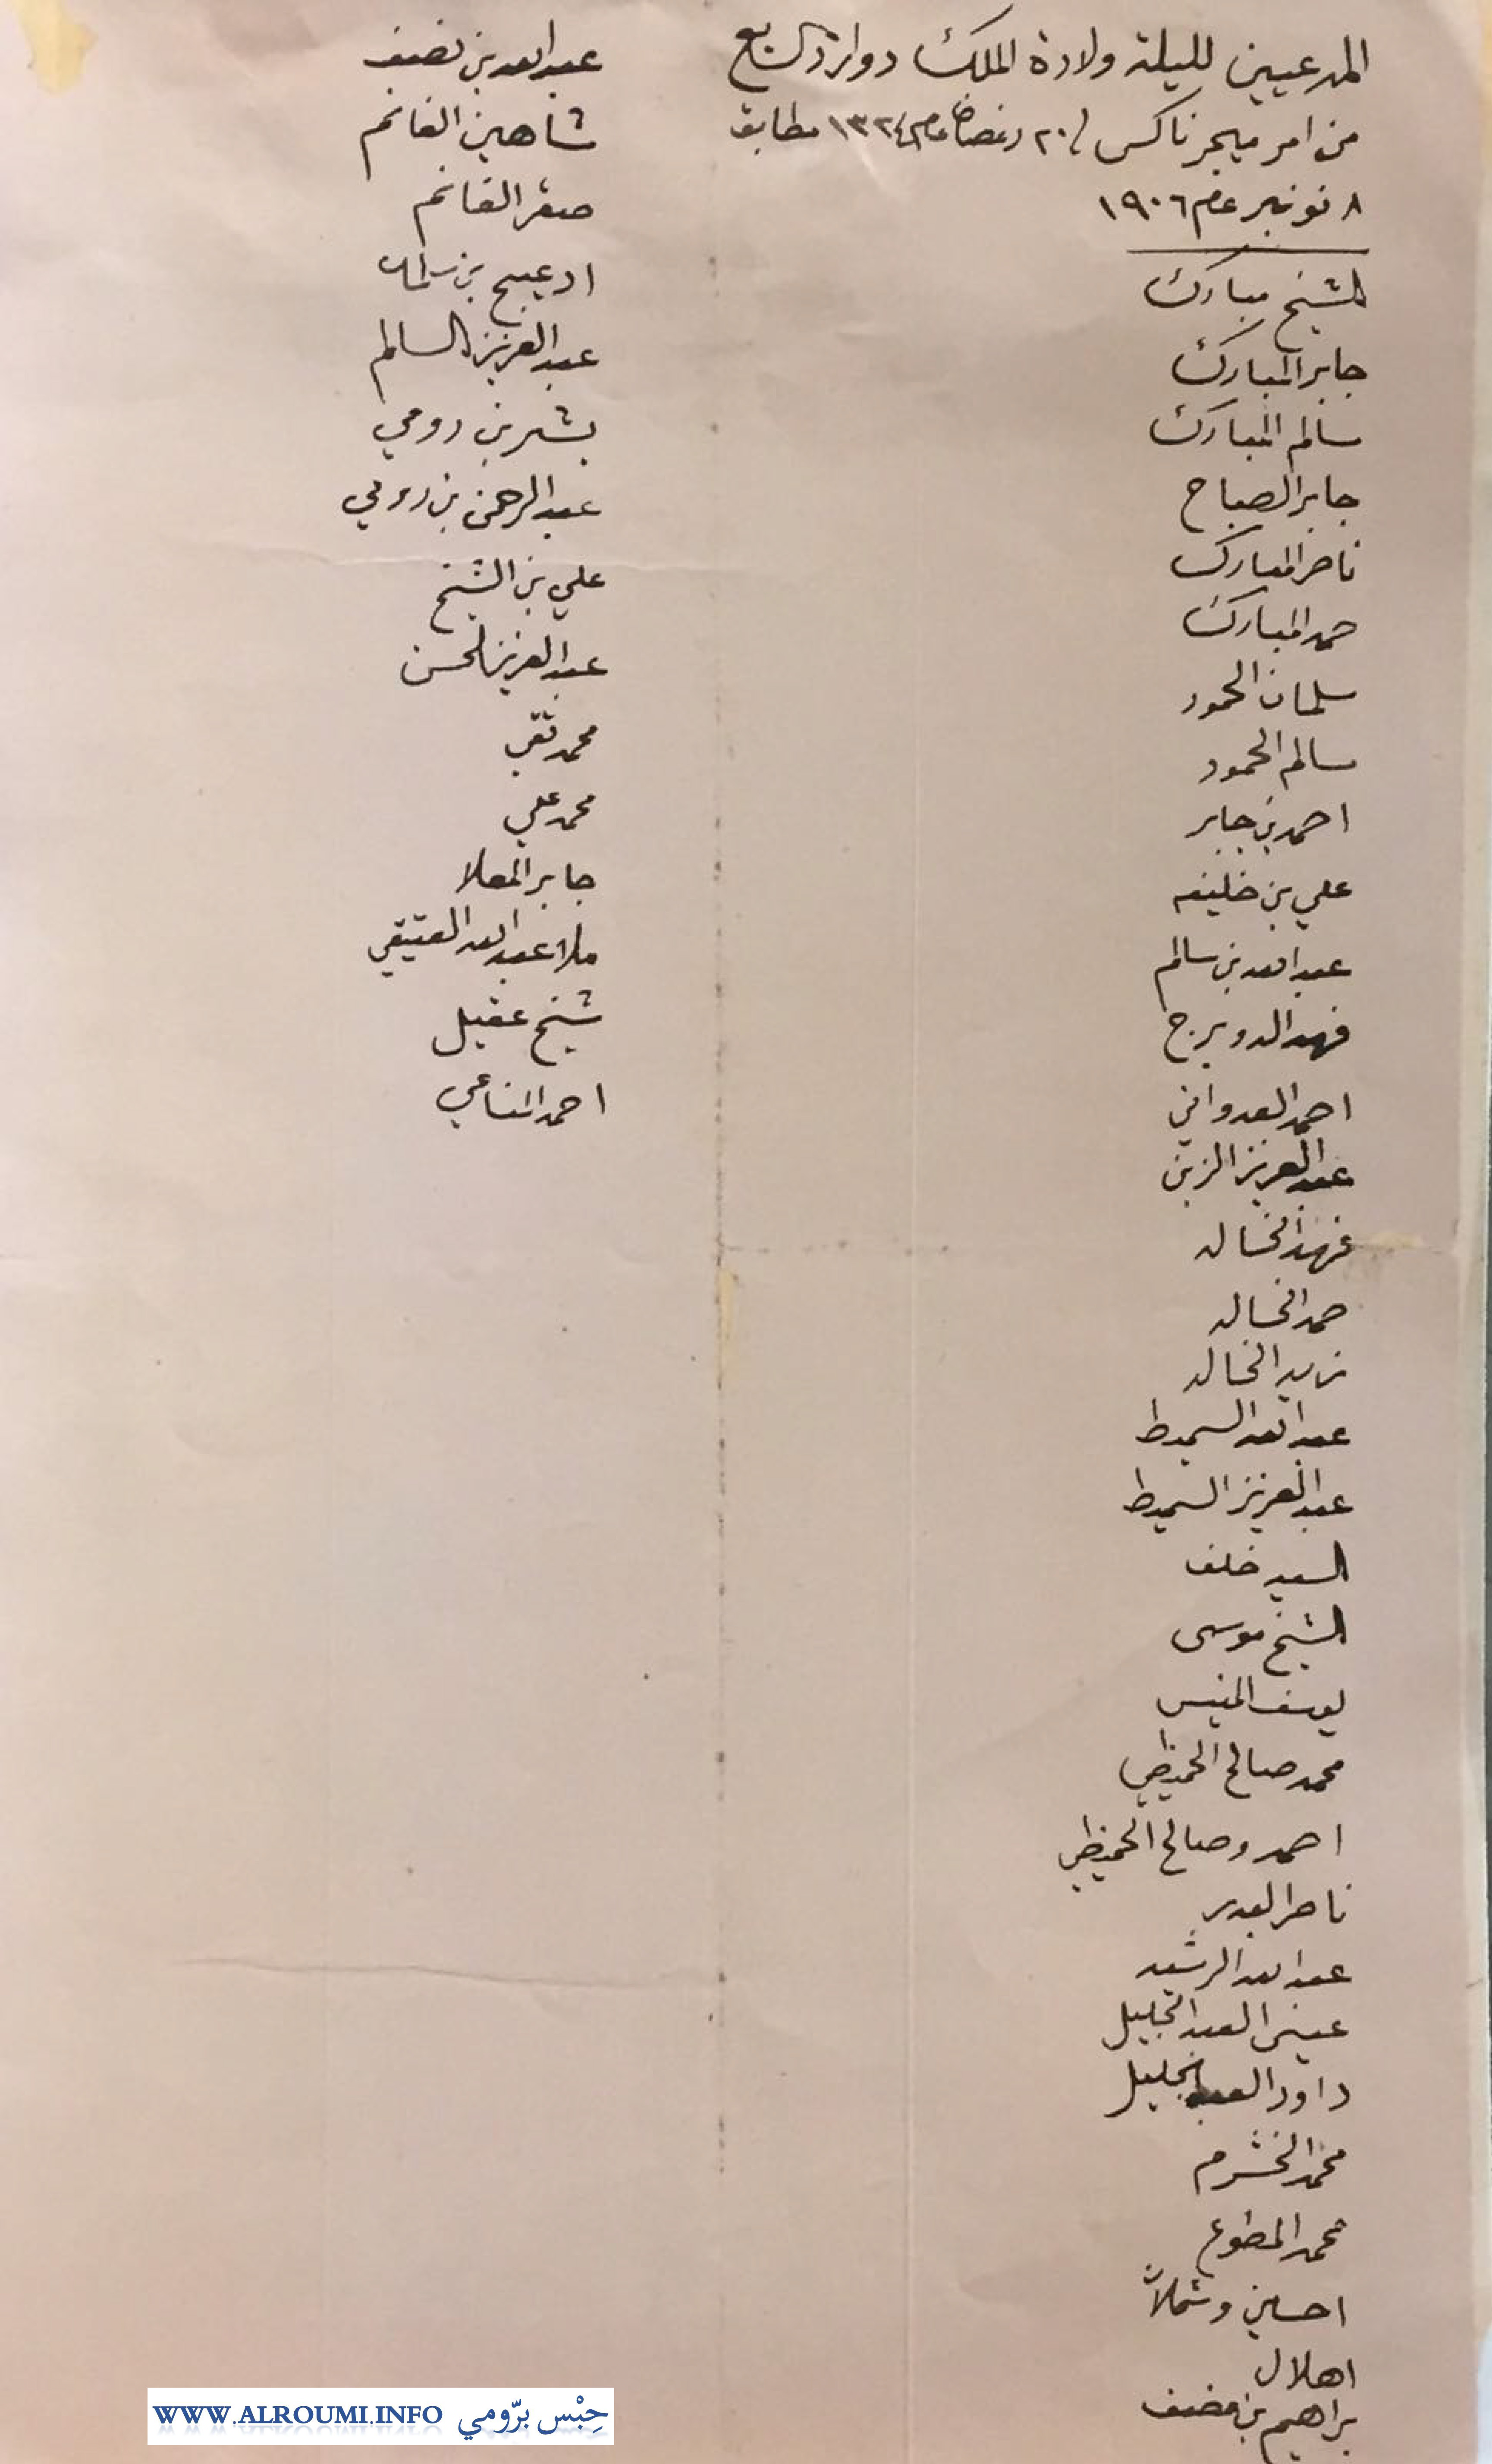 المدعيين لليلة ولادة الملك دوارد السابع
من امر ميجر ناكس ٢٠ رمضان عام ١٣٢٤ مطابق
٨ نوفمبر عام ١٩٠٦
الشيخ مبارك
جابر المبارك
سالم المبارك
جابر الصباح
ناصر المبارك
حمد المبارك
سلمان الحمود
سالم الحمود
احمد بن جابر
علي بن خليفه
عبدالله بن سالم
فهد الدويرج
احمد العدواني
عبدالعزيز الزبن
فهد الخالد
حمد الخالد
زيد الخالد
عبدالله السميط
عبدالعزيز السميط
السيد خلف
الشيخ موسى
يوسف المنيس
محمد صالح الحميظي
احمد وصالح الحميظي
ناصر البدر
عبدالله الرشيد
عيسى العبدالجليل
داود العبدالجليل
محمد الخشرم
محمد المطوع
احسين وشملان
اهلال
براهيم بن مضف
عبدالله بن نصف
شاهين الغانم
صقر الغانم
ادعيج بن سلمان
عبدالعزيز السالم
بشر بن رومي
عبدالرحمن بن رومي
علي بن الشيخ
عبدالعزيز لحسن
محمد تقي
محمد علي
جابر المعلا
ملا عبدالله العتيقي
شيخ عقيل
احمد المناعي
حِبْس برّومي WWW.ALROUMI.INFO